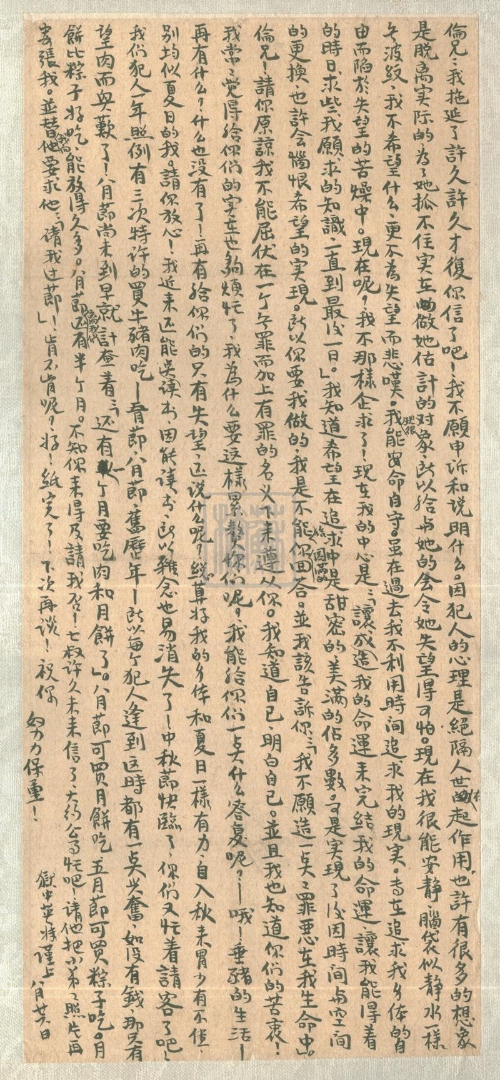 倫兄：我拖延了許久許久才復你信了吧！我不願申訴和說明什么。因犯人的心理是絕隔人世起作用，也許有很多的想象
是脫离实际的，为了她抓不住实在做她估計的对象，所以給与她的会令她失望得可怕。現在我很能安静，腦袋似静水一樣
無波紋，我不希望什么，更不為失望而悲嘆。我能安命自守。虽在過去我不利用時间追求我的現实。而在追求我身体的自
由而陷於失望的苦燥中。現在呢？我不那樣企求了！現在我的中心是：「讓我造我的命運來完結我的命運，讓我能得着
的時日，求些我願求的知識，一直到最後一日。」我知道希望在追求中是甜密的美满的佔多數。可是实現了後因時间与空间
的更換，也許会惱恨希望的实現。所以你要我做的，我是不能回答。並我該告訴你：「我不願造一点罪惡在我生命中。」
倫兄！請你原諒我不能屈伏在一个無罪而加上有罪的名义下來遵从你。我知道自己，明白自己。並且我也知道你们的苦衷！
我常常覺得給你们的实在也夠煩忙了，我為什么要這樣累贅你们呢，我能給你们一点什么答复呢？—哦！垂豬的生活—
再有什么？什么也没有了！再有給你们的只有失望，还說什么呢！總算好我的身体和夏日一樣有力，自入秋來胃口有不佳
別均似夏日的我。請你放心！我近來还能埃读书，因能读书，所以雜念也易消失了！中秋節快臨了，你们又忙着請客了吧！
我们犯人年照例有三次特許的買牛豬肉吃—五月節、八月節、舊曆年—所以每个犯人逢到这時都有一点兴奮，如没有錢，那只有
望肉而興歎了！八月節尚未到早就計查着：「还有一个月要吃肉和月餅了」。八月節可買月餅吃，五月節可買粽子吃。月
餅比粽子好吃，能放得久多。八月節还有半个月。不知你來得及請我否！七叔許久未來信了，大約公事忙吧，請他把小弟弟照片再
寄張我。並替我要求他：「請我过節」！肯不肯呢？好！紙完了！下次再談！祝你
努力保重！
獄中英特謹上
八月廿八日